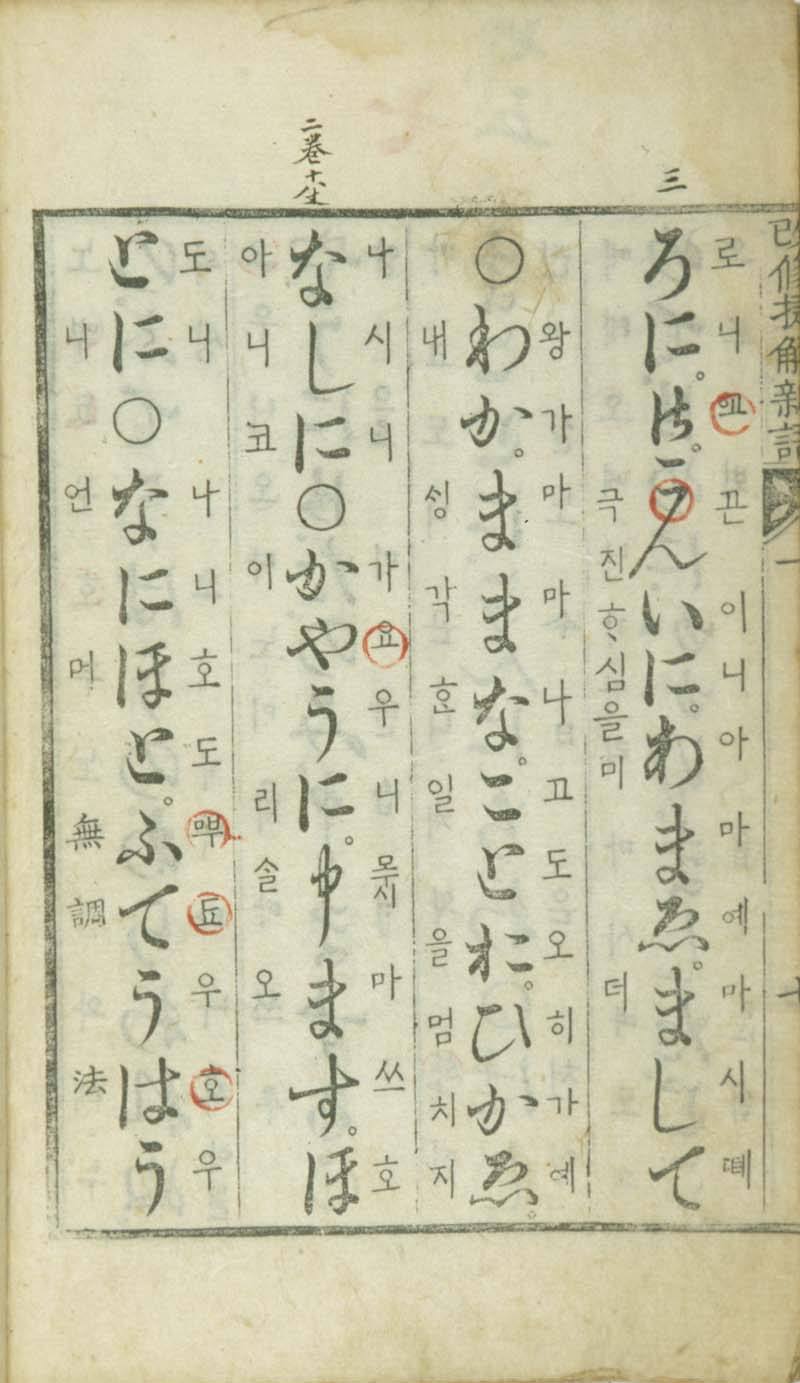 改修捷解新語 一 十
三
로니 끈이니아마예마시뗴
ろに。御こんいに。あまゑ。まして
극진ᄒᆞ심을미더
왕가마마나고도오히가예
○わか。ままな。ことお。ひかゑ。
내ᄉᆡᆼ각ᄒᆞᆫ일을멈치지
二巻
나시니가요우니못시마쓰호
なしに○かやうに。申ます。ほ
아니코이리ᄉᆞᆯ오
도니나니호도 됴우호우
とに○なにほと。ふてうはう
니언머無調法